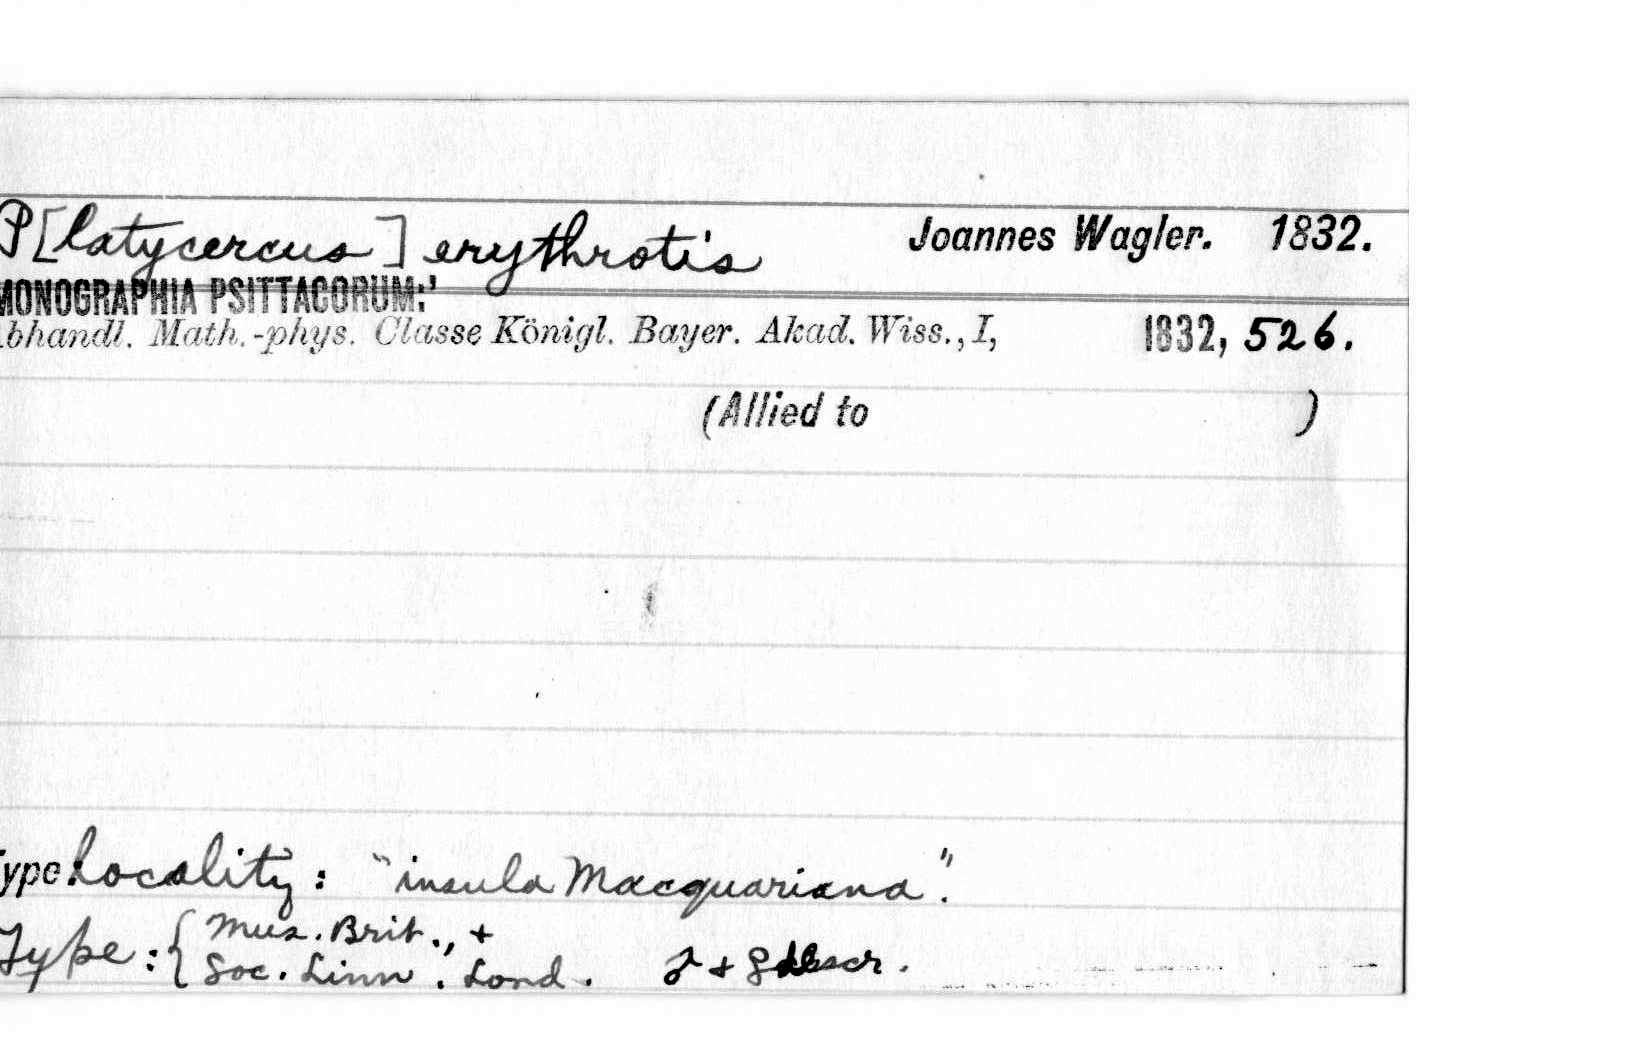 P[latycercus] erythrotis Joannes Wagler. 1832.
MONOGRAPHIA PSITTACORUM:'
bhandl. Math.-phys. Classe Königl. Bayer. Akad. Wiss., I, 1832, 526.
(Allied to )
ype locality: "insula Macquariana".
Type: { Mus. Brit., +
Soc. Linn. Lond. ♂ + ♀ descr.